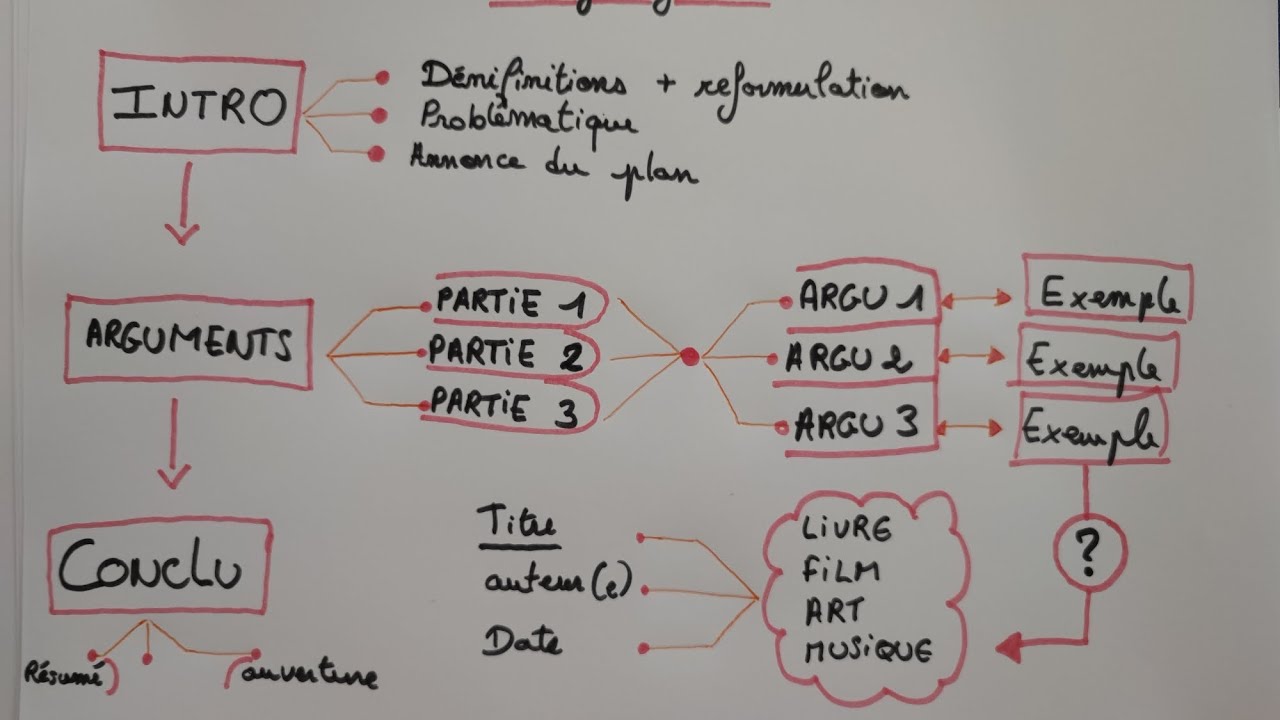 INTRO
Dénifinitions + reformulation
Problématique
Annonce du plan
ARGUMENTS
PARTiE 1
PARTiE 2
PARTiE 3
ARGU 1
ARGU 2
ARGU 3
Exemple
Exemple
Exemple
CONCLU
Résumé
ouverture
Titre
auteur(e)
Date
LiVRE
FiLM
ART
MUSiQUE
?